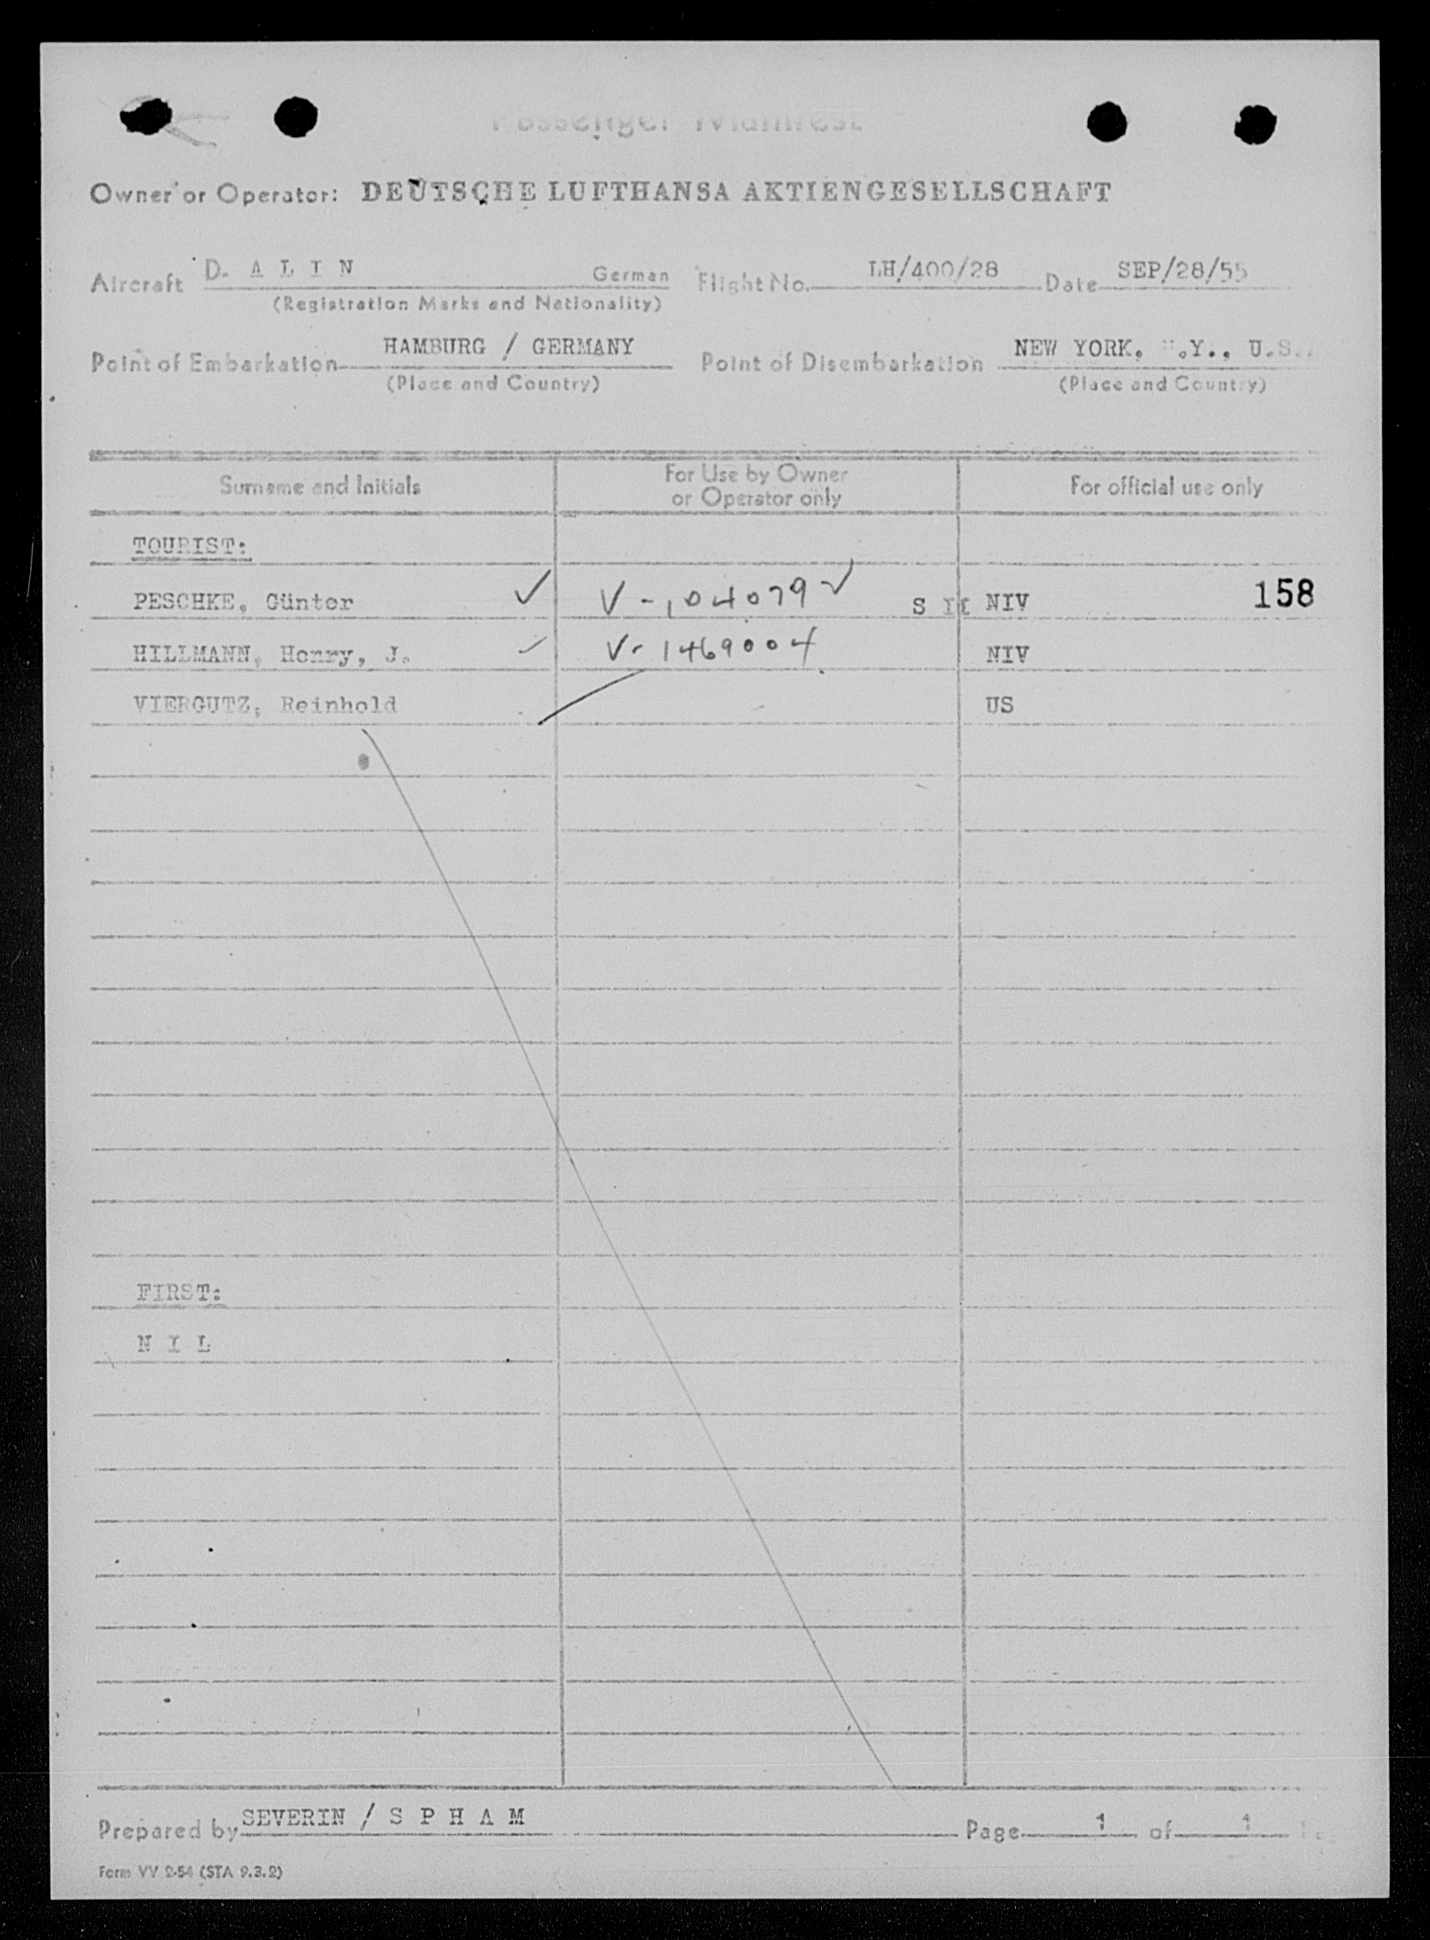 Passenger Manifest
Owner or Operator: DEUTSCHE LUFTHANSA AKTIENGESELLSCHAFT
Aircraft D. A L I N German Flight No. LH/400/28 Date SEP/28/55
(Registration Marks and Nationality)
Point of Embarkation HAMBURG / GERMANY Point of Disembarkation NEW YORK, .Y., U.S.
(Place and Country) (Place and Country)
Surname and Initials For Use by Owner or Operator only For official use only
TOURIST:
PESCHKE, Günter ✓ V-104079 ✓ S II NIV 158
HILLMANN, Henry, J. ✓ V-1469004 NIV
VIERGUTZ, Reinhold US
FIRST:
N I L
Prepared by SEVERIN / S P H A M Page 1 of 1
Form VV 2-54 (STA 9.3.2)